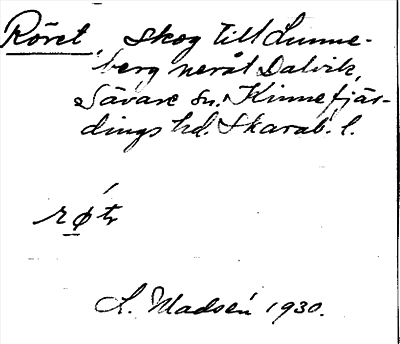 Röret, skog till Lunne-
berg neråt Dalvik,
Sävare sn. Kinnefjär-
dings hd. Skarab. l.
rø´tr
L. Madsén 1930.